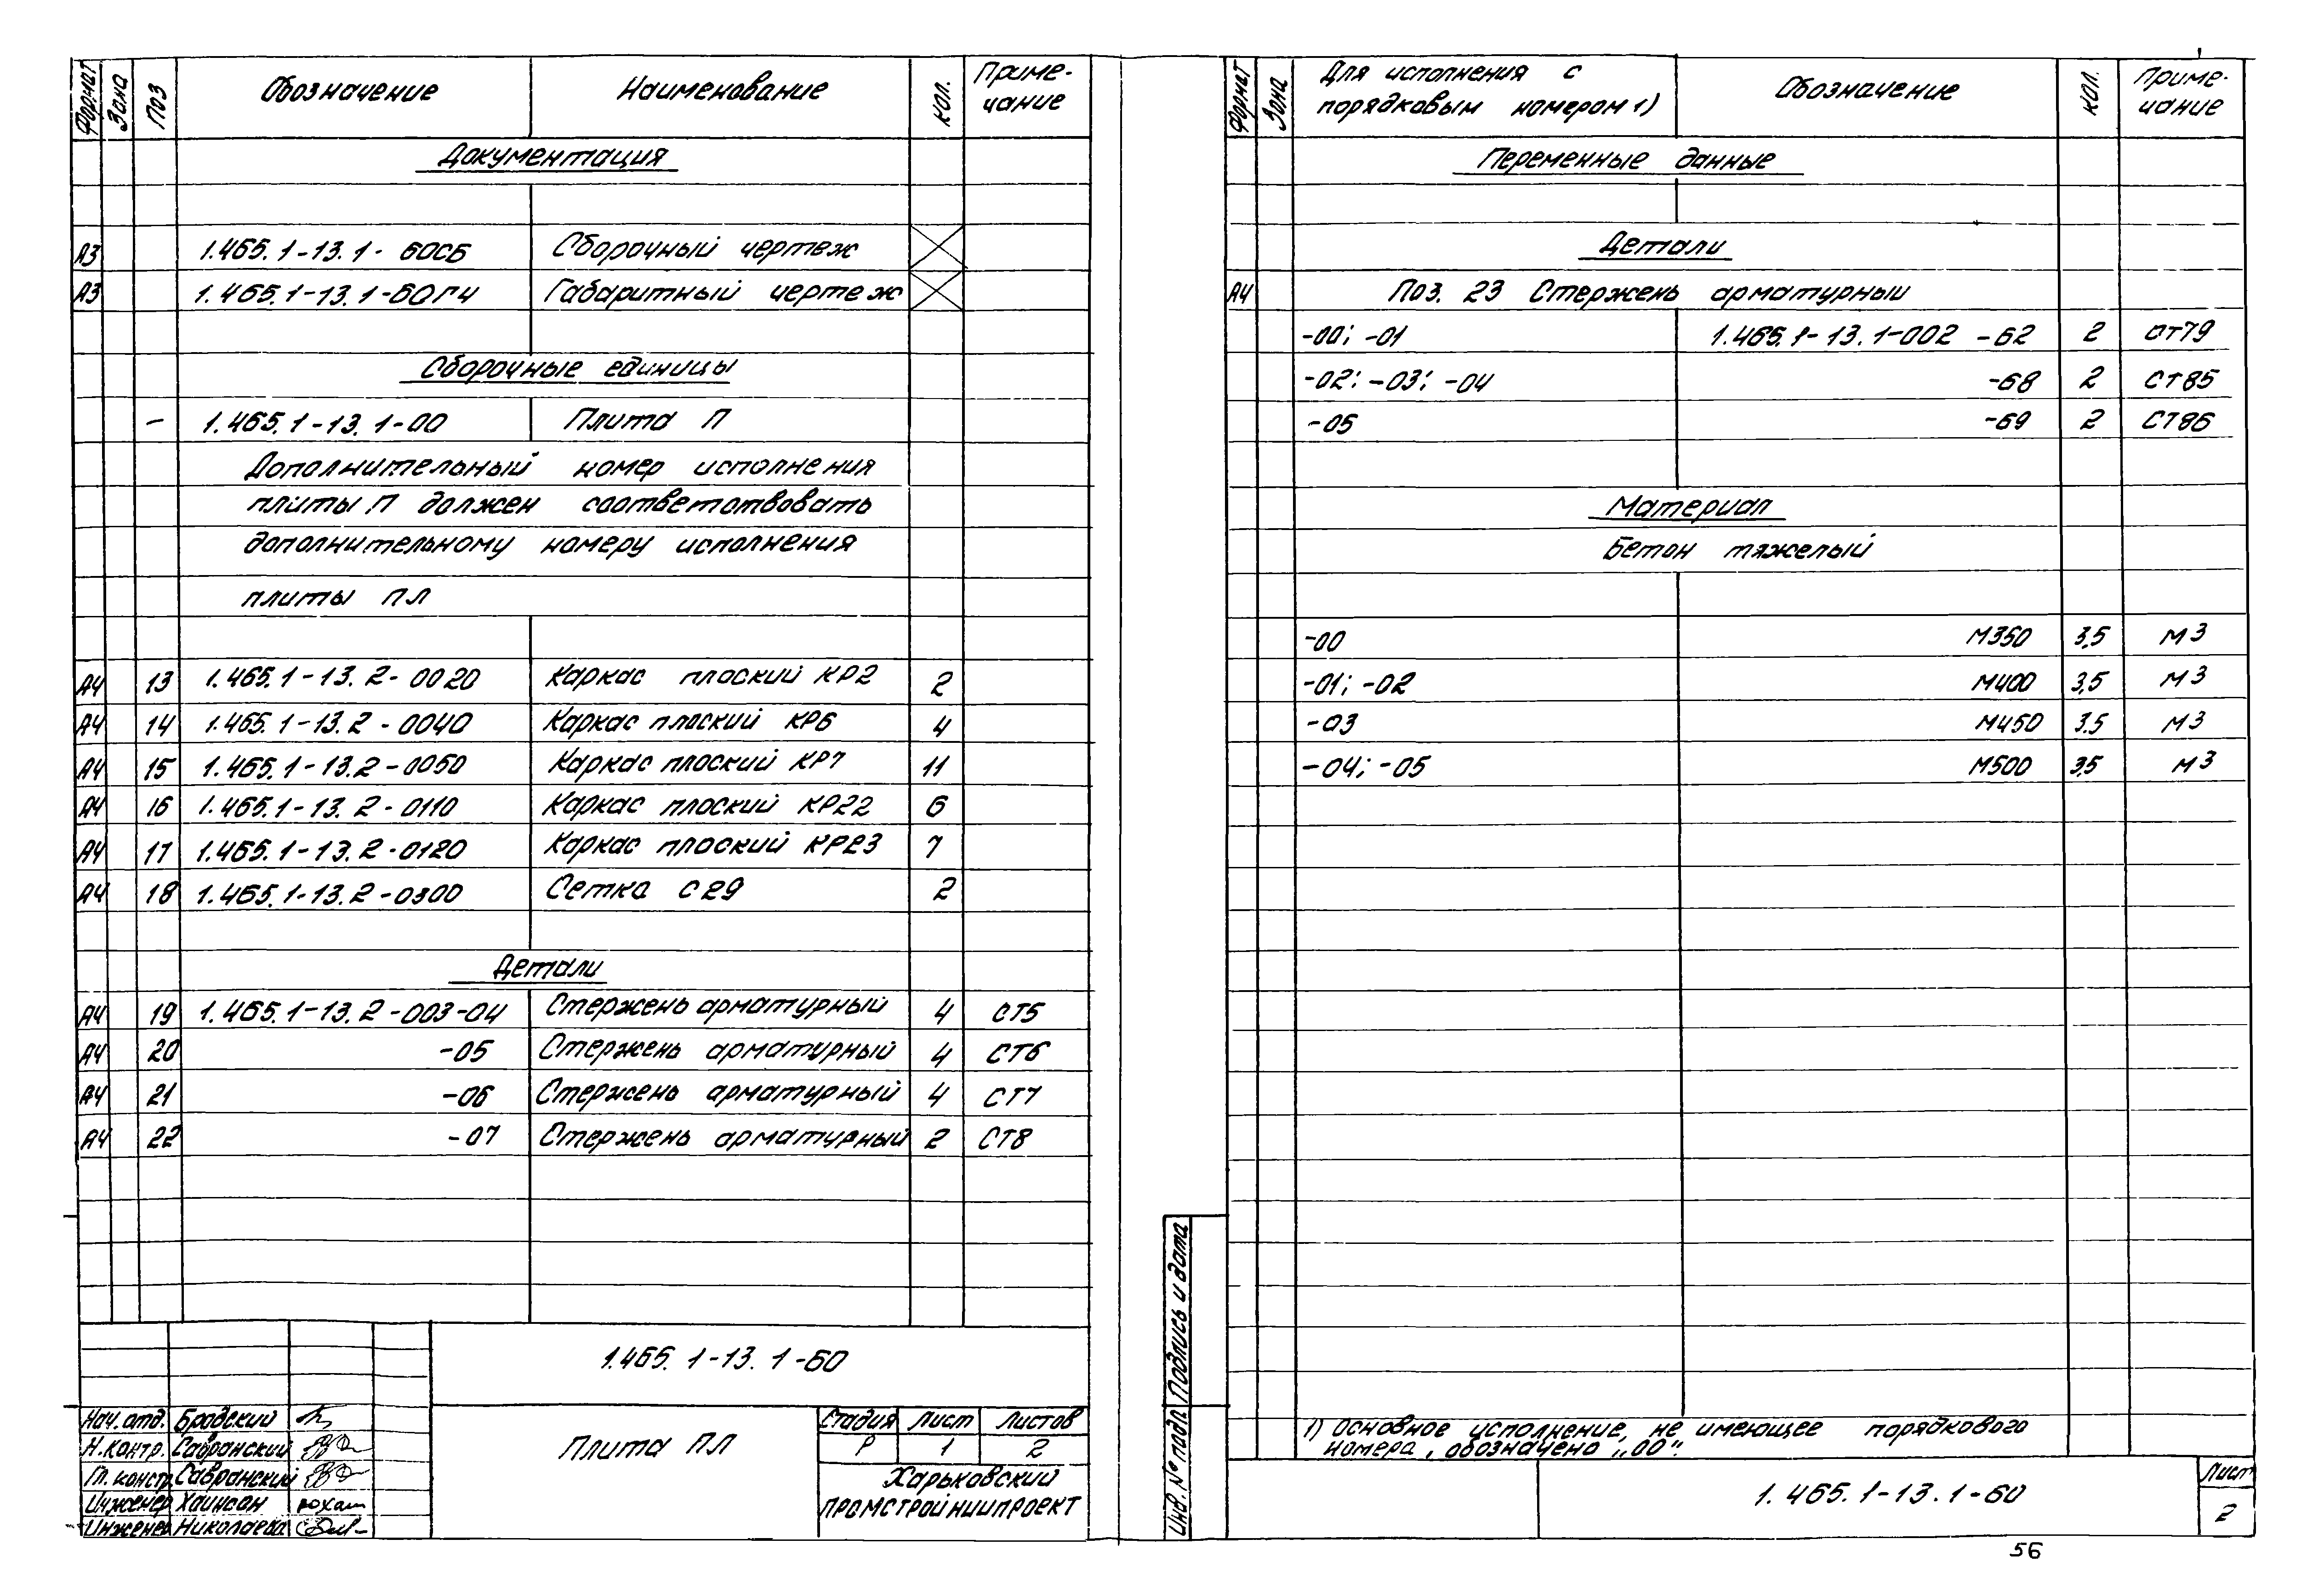 Формат Зона Поз Обозначение Наименование Кол. Приме-
чание
Документация
А3 1.465.1-13.1-60СБ Сборочный чертеж
А3 1.465.1-13.1-60ГЧ Габаритный чертеж
Сборочные единицы
- 1.465.1-13.1-00 Плита П
Дополнительный номер исполнения
плиты П должен соответствовать
дополнительному номеру исполнения
плиты ПЛ
А4 13 1.465.1-13.2-0020 Каркас плоский КР2 2
А4 14 1.465.1-13.2-0040 Каркас плоский КР6 4
А4 15 1.465.1-13.2-0050 Каркас плоский КР7 11
А4 16 1.465.1-13.2-0110 Каркас плоский КР22 6
А4 17 1.465.1-13.2-0120 Каркас плоский КР23 7
А4 18 1.465.1-13.2-0300 Сетка С29 2
Детали
А4 19 1.465.1-13.2-003-04 Стержень арматурный 4 СТ5
А4 20 -05 Стержень арматурный 4 СТ6
А4 21 -06 Стержень арматурный 4 СТ7
А4 22 -07 Стержень арматурный 2 СТ8
1.465.1-13.1-60
Нач.отд. Бродский
Н.контр. Савранский
Гл.констр. Савранский
Инженер Хаинсон
Инженер Николаева
Плита ПЛ
Стадия Лист Листов
Р 1 2
Харьковский
ПРОМСТРОЙНИИПРОЕКТ
Формат Зона Для исполнения с
порядковым номером 1) Обозначение Кол. Приме-
чание
Переменные данные
Детали
А4 Поз. 23 Стержень арматурный
-00; -01 1.465.1-13.1-002 -62 2 СТ79
-02; -03; -04 -68 2 СТ85
-05 -69 2 СТ86
Материал
Бетон тяжелый
-00 М350 3,5 м3
-01; -02 М400 3,5 м3
-03 М450 3.5 м3
-04; -05 М500 3,5 м3
1) Основное исполнение, не имеющее порядкового
номера, обозначено „00".
Инв. № подл Подпись и дата
1.465.1-13.1-60
Лист
2
56